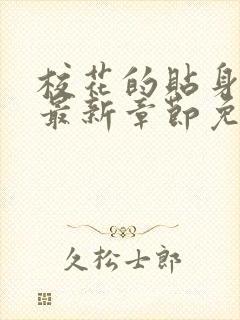 校花的贴身
最新章节免
久松士郎